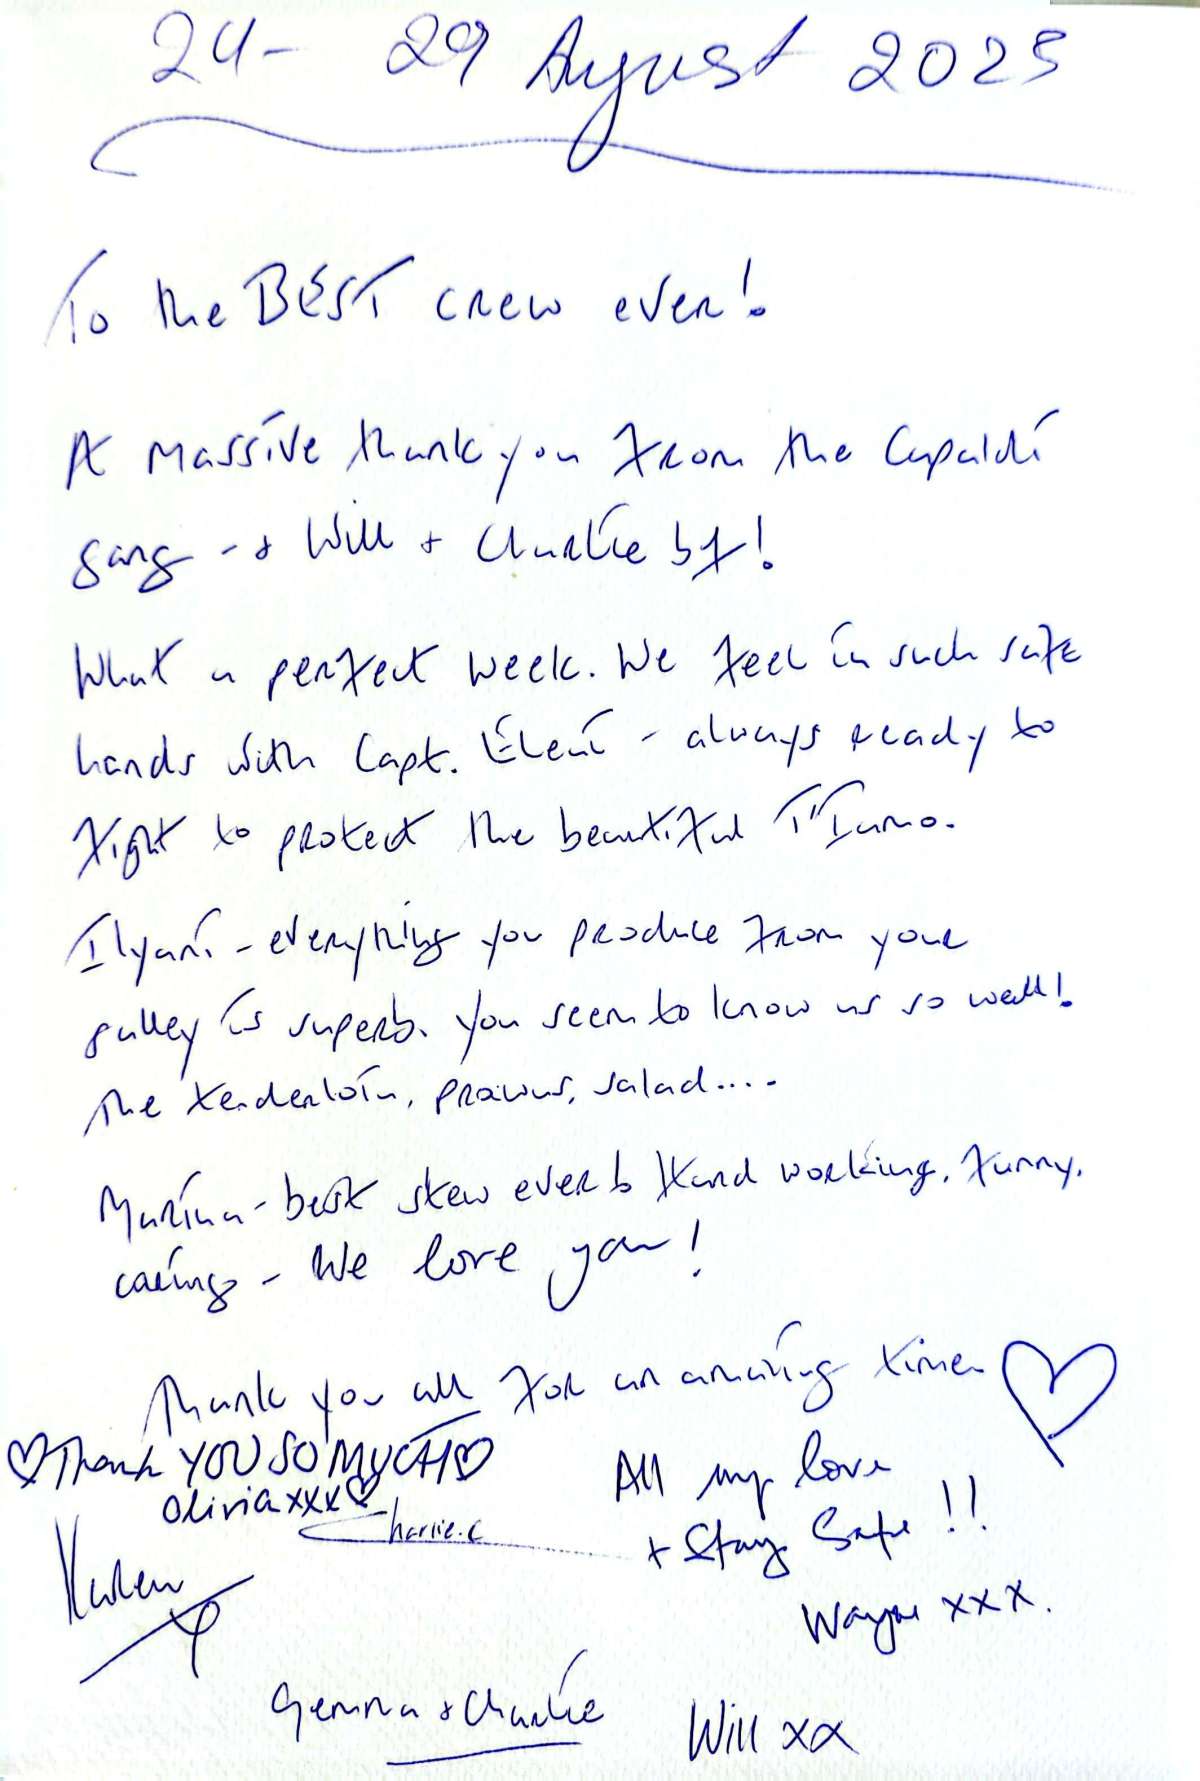 24 - 29 August 2025
To the BEST crew ever!
A massive thank you from the Capaldi
gang - + Will + Charlie bf!
What a perfect week. We feel in such safe
hands with Capt. Eleni - always ready to
fight to protect the beautiful
Ilyani - everything you produce from your
galley is superb. You seem to know us so well!
The tenderloin, prawns, salad....
Marina - best stew ever Hard working, funny,
caring - We love you!
Thank you all for an amazing time.
♡ Thank YOU SO MUCH ♡
Olivia xxx ♡
Charlie.C
Karen
All my love
+ Stay Safe!!
Wayne xxx.
Gemma + Charlie
Will xx